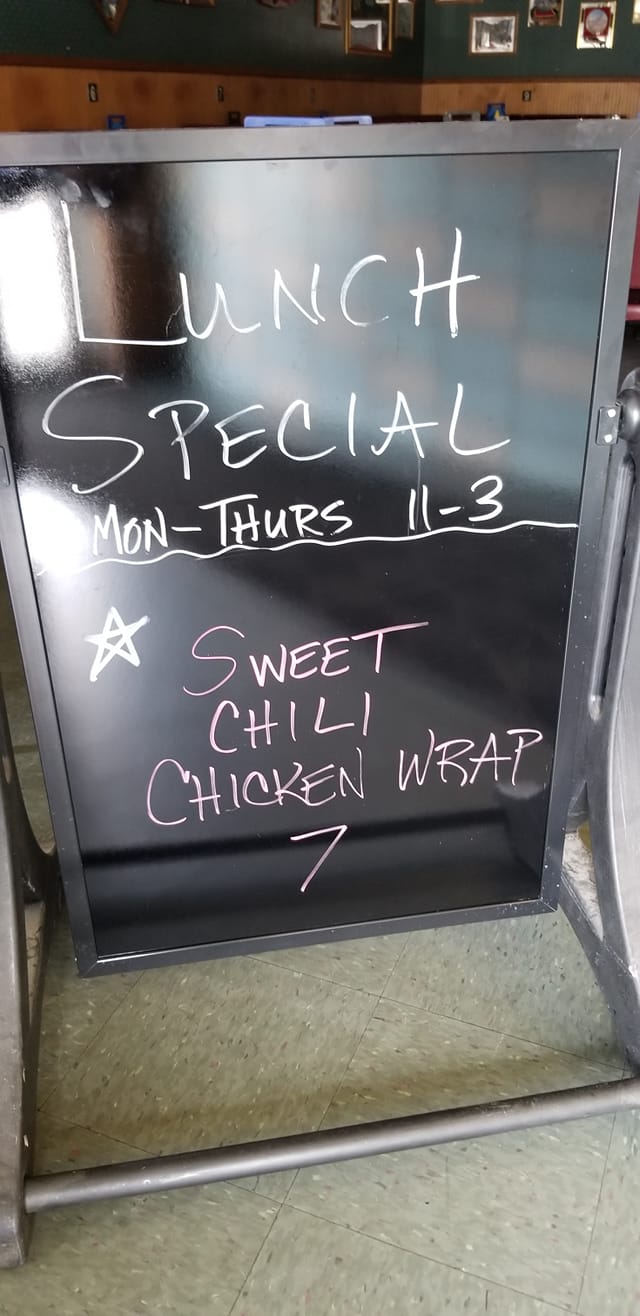 LUNCH
SPECIAL
MON-THURS 11-3
SWEET
CHILI
CHICKEN WRAP
7